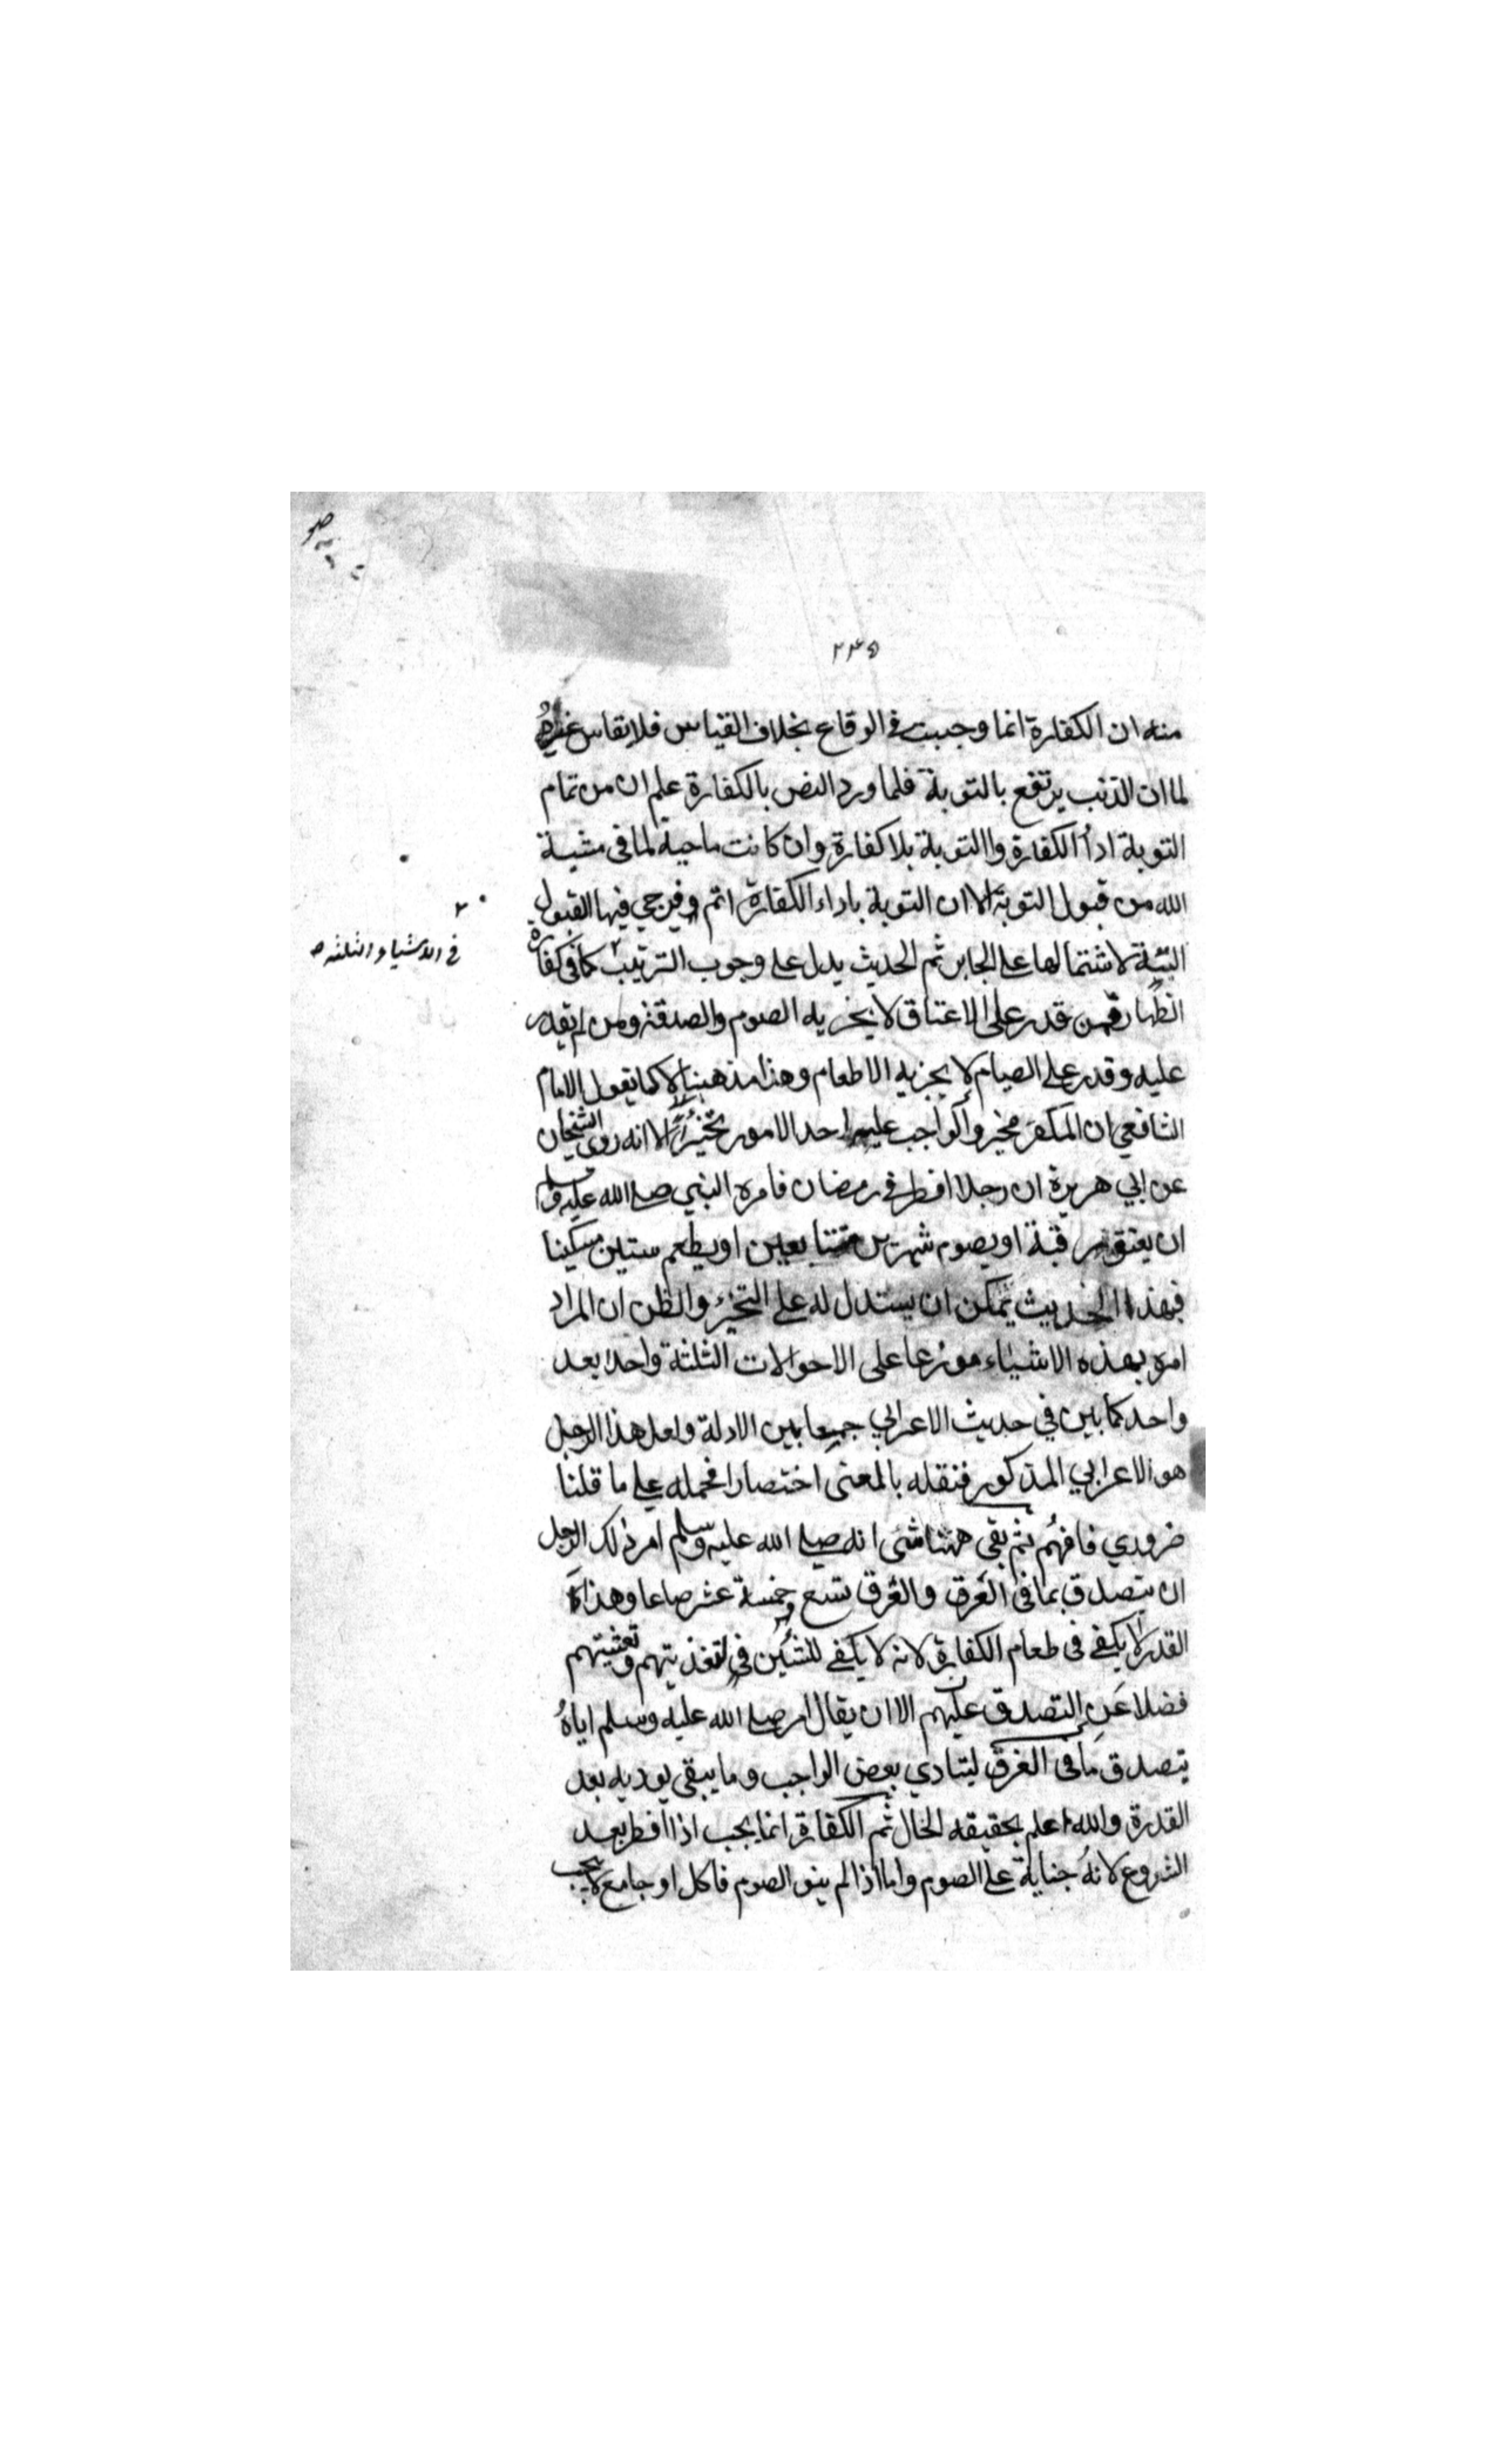 ٢٣٥
منه ان الكفارة انما وجبت في الوقاع بخلاف القياس فلا يقاس غيره
لما ان الذنب يرتفع بالتوبة فلما ورد النص بالكفارة علم ان من تمام
التوبة اداء الكفارة واالتوبة بلا كفارة وان كانت ماحية لما في مشية
الله من قبول التوبة الا ان التوبة باداء الكفارة اتم وفيرجي فيها القبول
البتة لاشتمالها على الجابر ثم الحديث يدل على وجوب الترتيب كما في كفارة
في الاشياء الثلثه
الظهار فمن قدر على الاعتاق لا يجزيه الصوم والصدقة ومن لم يقدر
عليه وقدر على الصيام لا يجزيه الاطعام وهذا مذهبنا لا كما يقول الامام
الشافعي ان المكفر مخير والواجب عليه احد الامور تخيرا لا انه روى الشيخان
عن ابي هريرة ان رجلا افطر في رمضان فامره النبي صلى الله عليه وسلم
ان يعتق رقبة او يصوم شهرين متتابعين او يطعم ستين مسكينا
فبهذا الحديث يمكن ان يستدل له على التخير والظن ان المراد
امره بهذه الاشياء موزعا على الاحوالات الثلثة واحدا بعد
واحد كما بين في حديث الاعرابي جمعا بين الادلة ولعل هذا الرجل
هو الاعرابي المذكور فنقله بالمعنى اختصارا فحمله على ما قلنا
ضروري فافهم ثم بقي ههنا شى انه صلى الله عليه وسلم امر ذلك الرجل
ان يتصدق بما في العرق والعرق تسع خمسة عشر صاعا وهذا
القدر لا يكفى فى طعام الكفارة لانه لا يكفى للستين في تغذيتهم وتعشيتهم
فضلا عن التصدق عليهم الا ان يقال امر صلى الله عليه وسلم اياه
يتصدق ما في العرق ليتادي بعض الواجب وما يبقى يوديه بعد
القدرة والله اعلم بحقيقه الحال ثم الكفارة انما يجب اذا افطر بعد
الشروع لانه جناية على الصوم واما اذا لم ينو الصوم فاكل او جامع لا يجب